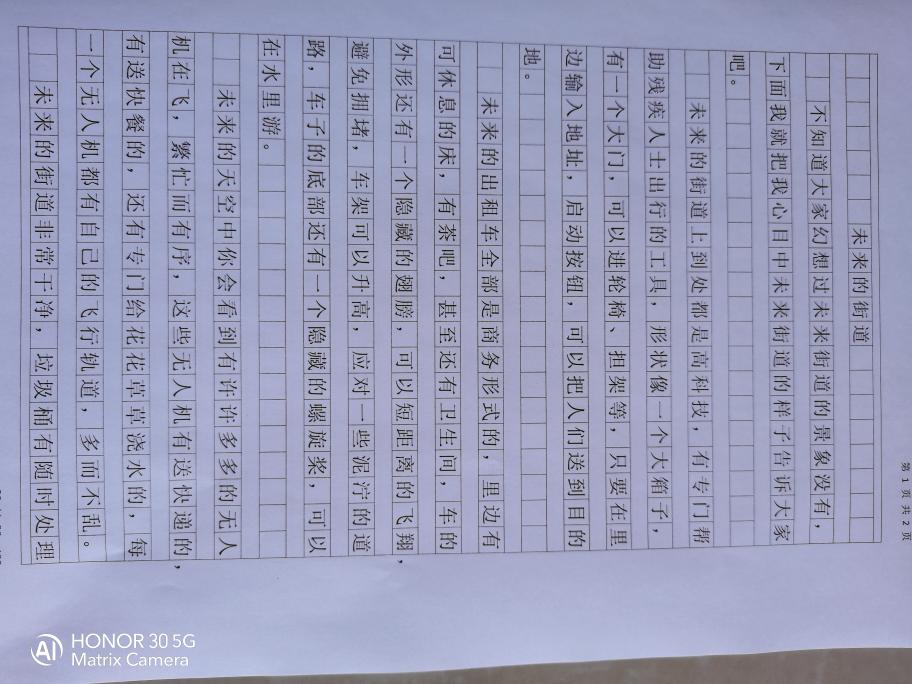 第1页 共2页
未来的街道
不知道大家幻想过未来街道的景象没有，
下面我就把我心目中未来街道的样子告诉大家
吧。
未来的街道上到处都是高科技，有专门帮
助残疾人士出行的工具，形状像一个大箱子，
有一个大门，可以进轮椅、担架等，只要在里
边输入地址，启动按钮，可以把人们送到目的
地。
未来的出租车全部是商务形式的，里边有
可休息的床，有茶吧，甚至还有卫生间，车的
外形还有一个隐藏的翅膀，可以短距离的飞翔，
避免拥堵，车架可以升高，应对一些泥泞的道
路，车子的底部还有一个隐藏的螺旋桨，可以
在水里游。
未来的天空中你会看到有许许多多的无人
机在飞，繁忙而有序，这些无人机有送快递的，
有送快餐的，还有专门给花花草草浇水的，每
一个无人机都有自己的飞行轨道，多而不乱。
未来的街道非常干净，垃圾桶有随时处理
HONOR 30 5G
Matrix Camera